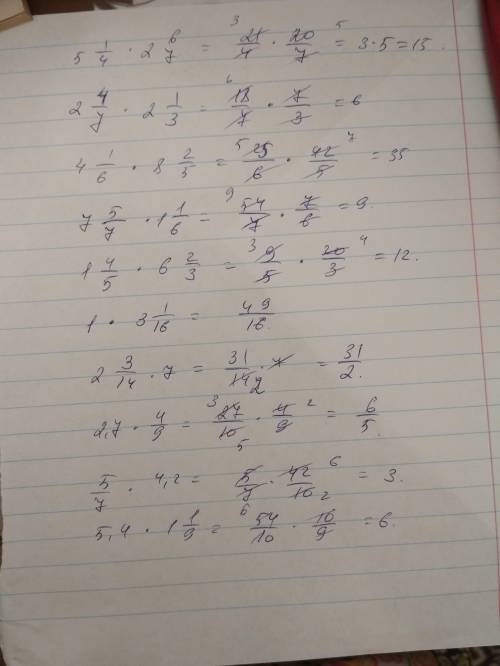 5 1/4 · 2 6/7 = 21/4 · 20/7 = 3·5=15.
2 4/7 · 2 1/3 = 18/7 · 7/3 = 6
4 1/6 · 8 2/5 = 25/6 · 42/5 = 35
7 5/7 · 1 1/6 = 54/7 · 7/6 = 9
1 4/5 · 6 2/3 = 9/5 · 20/3 = 12.
1 · 3 1/16 = 49/16.
2 3/14 · 7 = 31/14 · 7 = 31/2.
2,7 · 4/9 = 27/10 · 4/9 = 6/5.
5/7 · 4,2 = 5/7 · 42/10 = 3.
5,4 · 1 1/9 = 54/10 · 10/9 = 6.